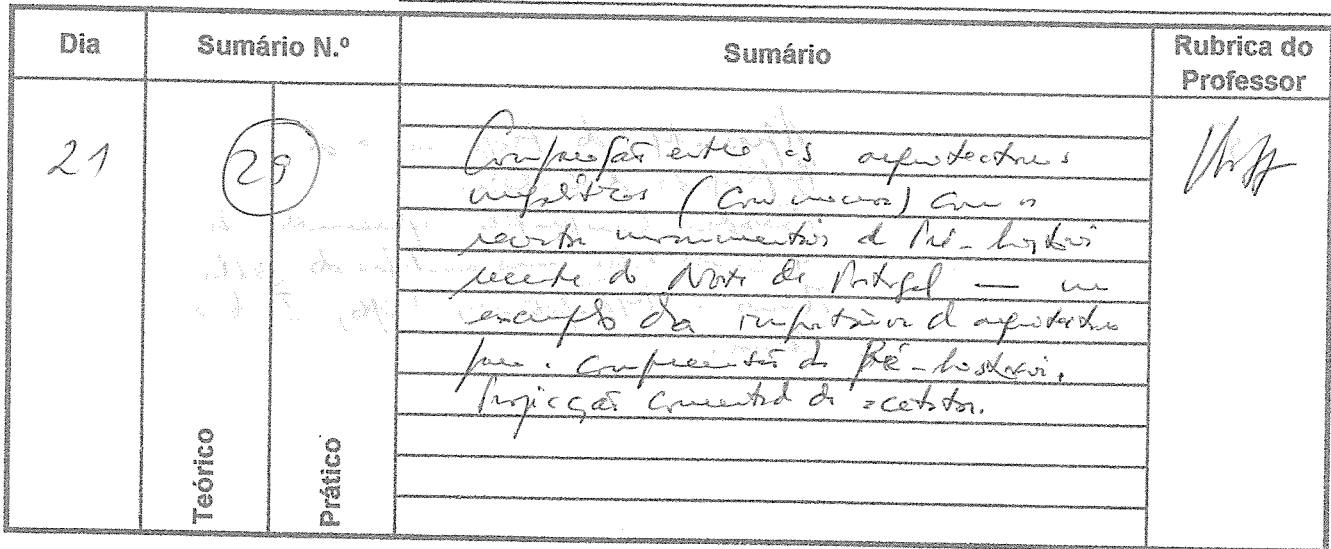 Dia Sumário N.º Sumário Rubrica do Professor
21 29 Comparação entre as arquitecturas
megalíticas (com mamoa) com
monumentos da Pré-história
recente do Norte de Portugal — um
exemplo da importância da arquitectura
para a compreensão da Pré-história.
Projecção comentada de acetatos.
Teórico
Prático